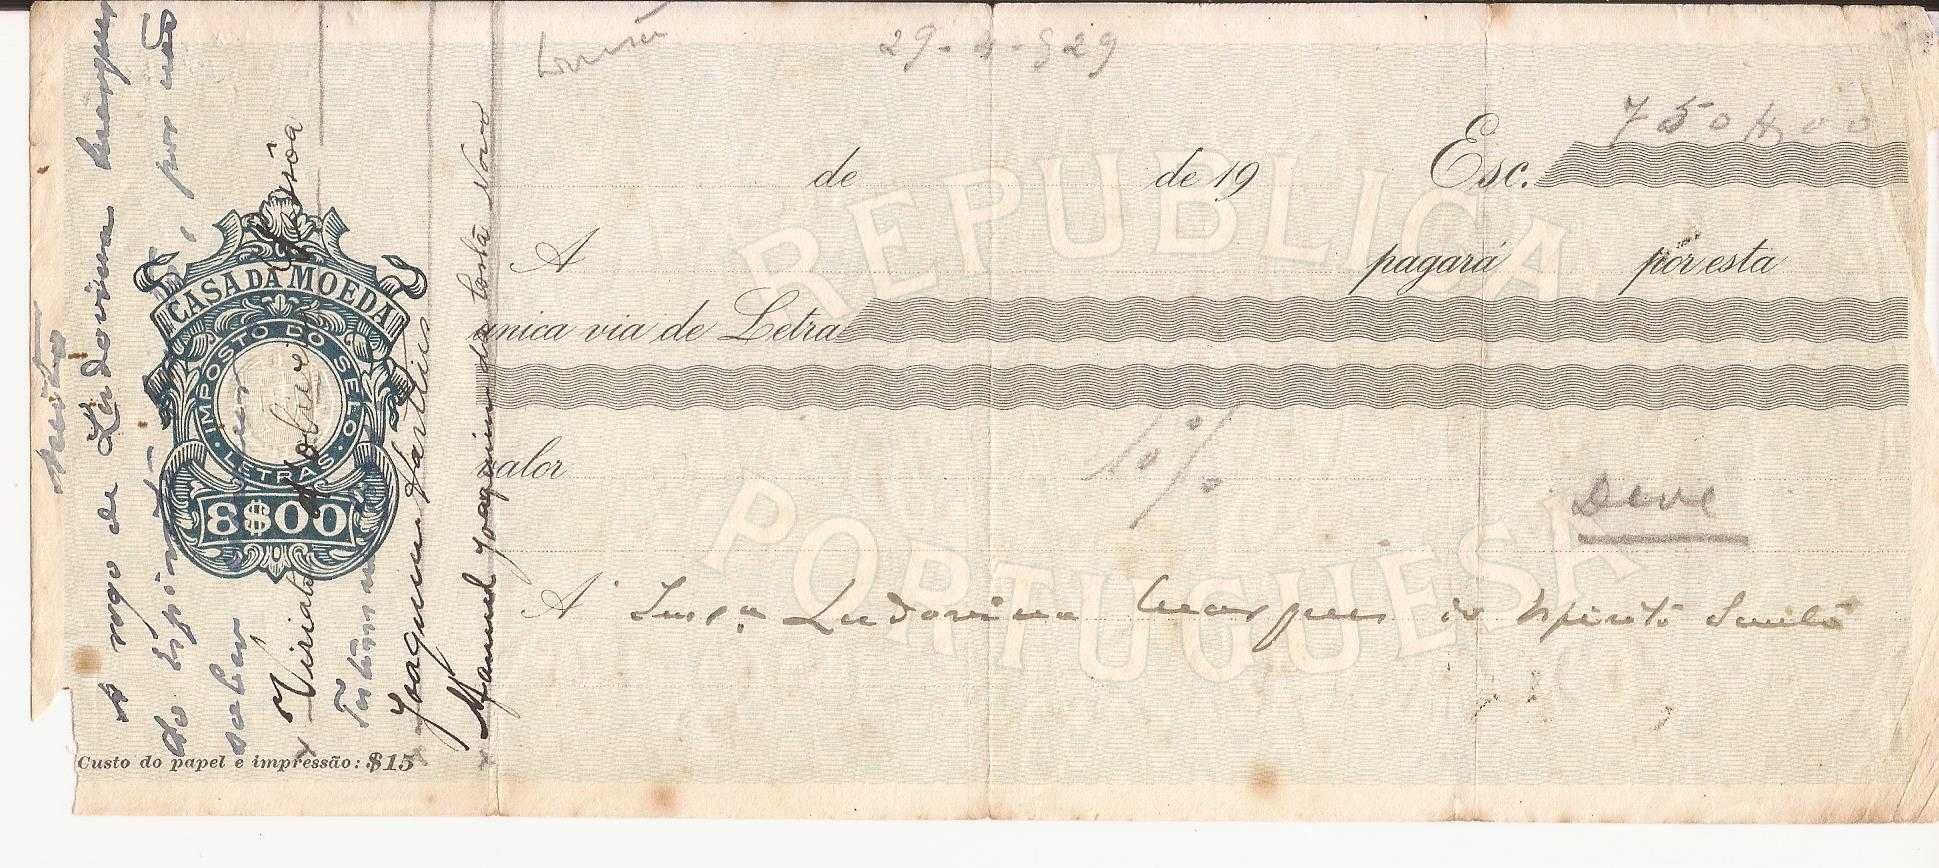 Lousã 29-4-929
750$00
de de 19 Esc.
A pagará por esta
única via de Letra
valor
Deve
A Ludovina Marques do Espirito Santo
REPUBLICA
PORTUGUESA
CASA DA MOEDA
IMPOSTO DO SELO
LETRAS
8$00
Custo do papel e impressão: $15
A rogo de Ludovina Marques
do Espirito, por não
saber
Viriato
Joaquim
Manuel Joaquim da Costa Novo